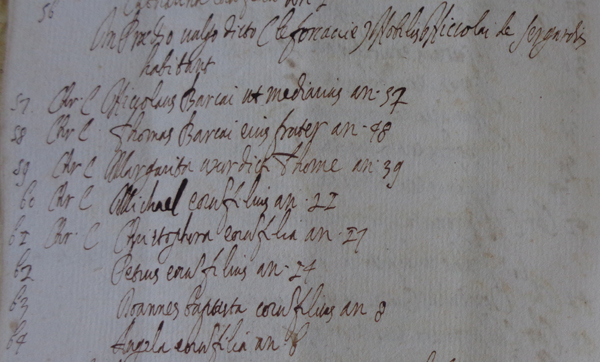 56
In Predio vulgo dicto (le fornacie) Nobilis Niccolai de Sergardis
habitant
57 Chr. C Niccolaus Barcai ut mediarius an. 57
58 Chr C Thomas Barcai eius frater an 48
59 Chr C Margarita uxor dict Thome an 39
60 Chr C Michael eorusf filius an. 21
61 Chr. C Christophora eorusf filia an. 17
62 Petrus eorusf filius an. 14
63 Joannes Baptista eorusf filius an 8
64 Angela eorusf filia an